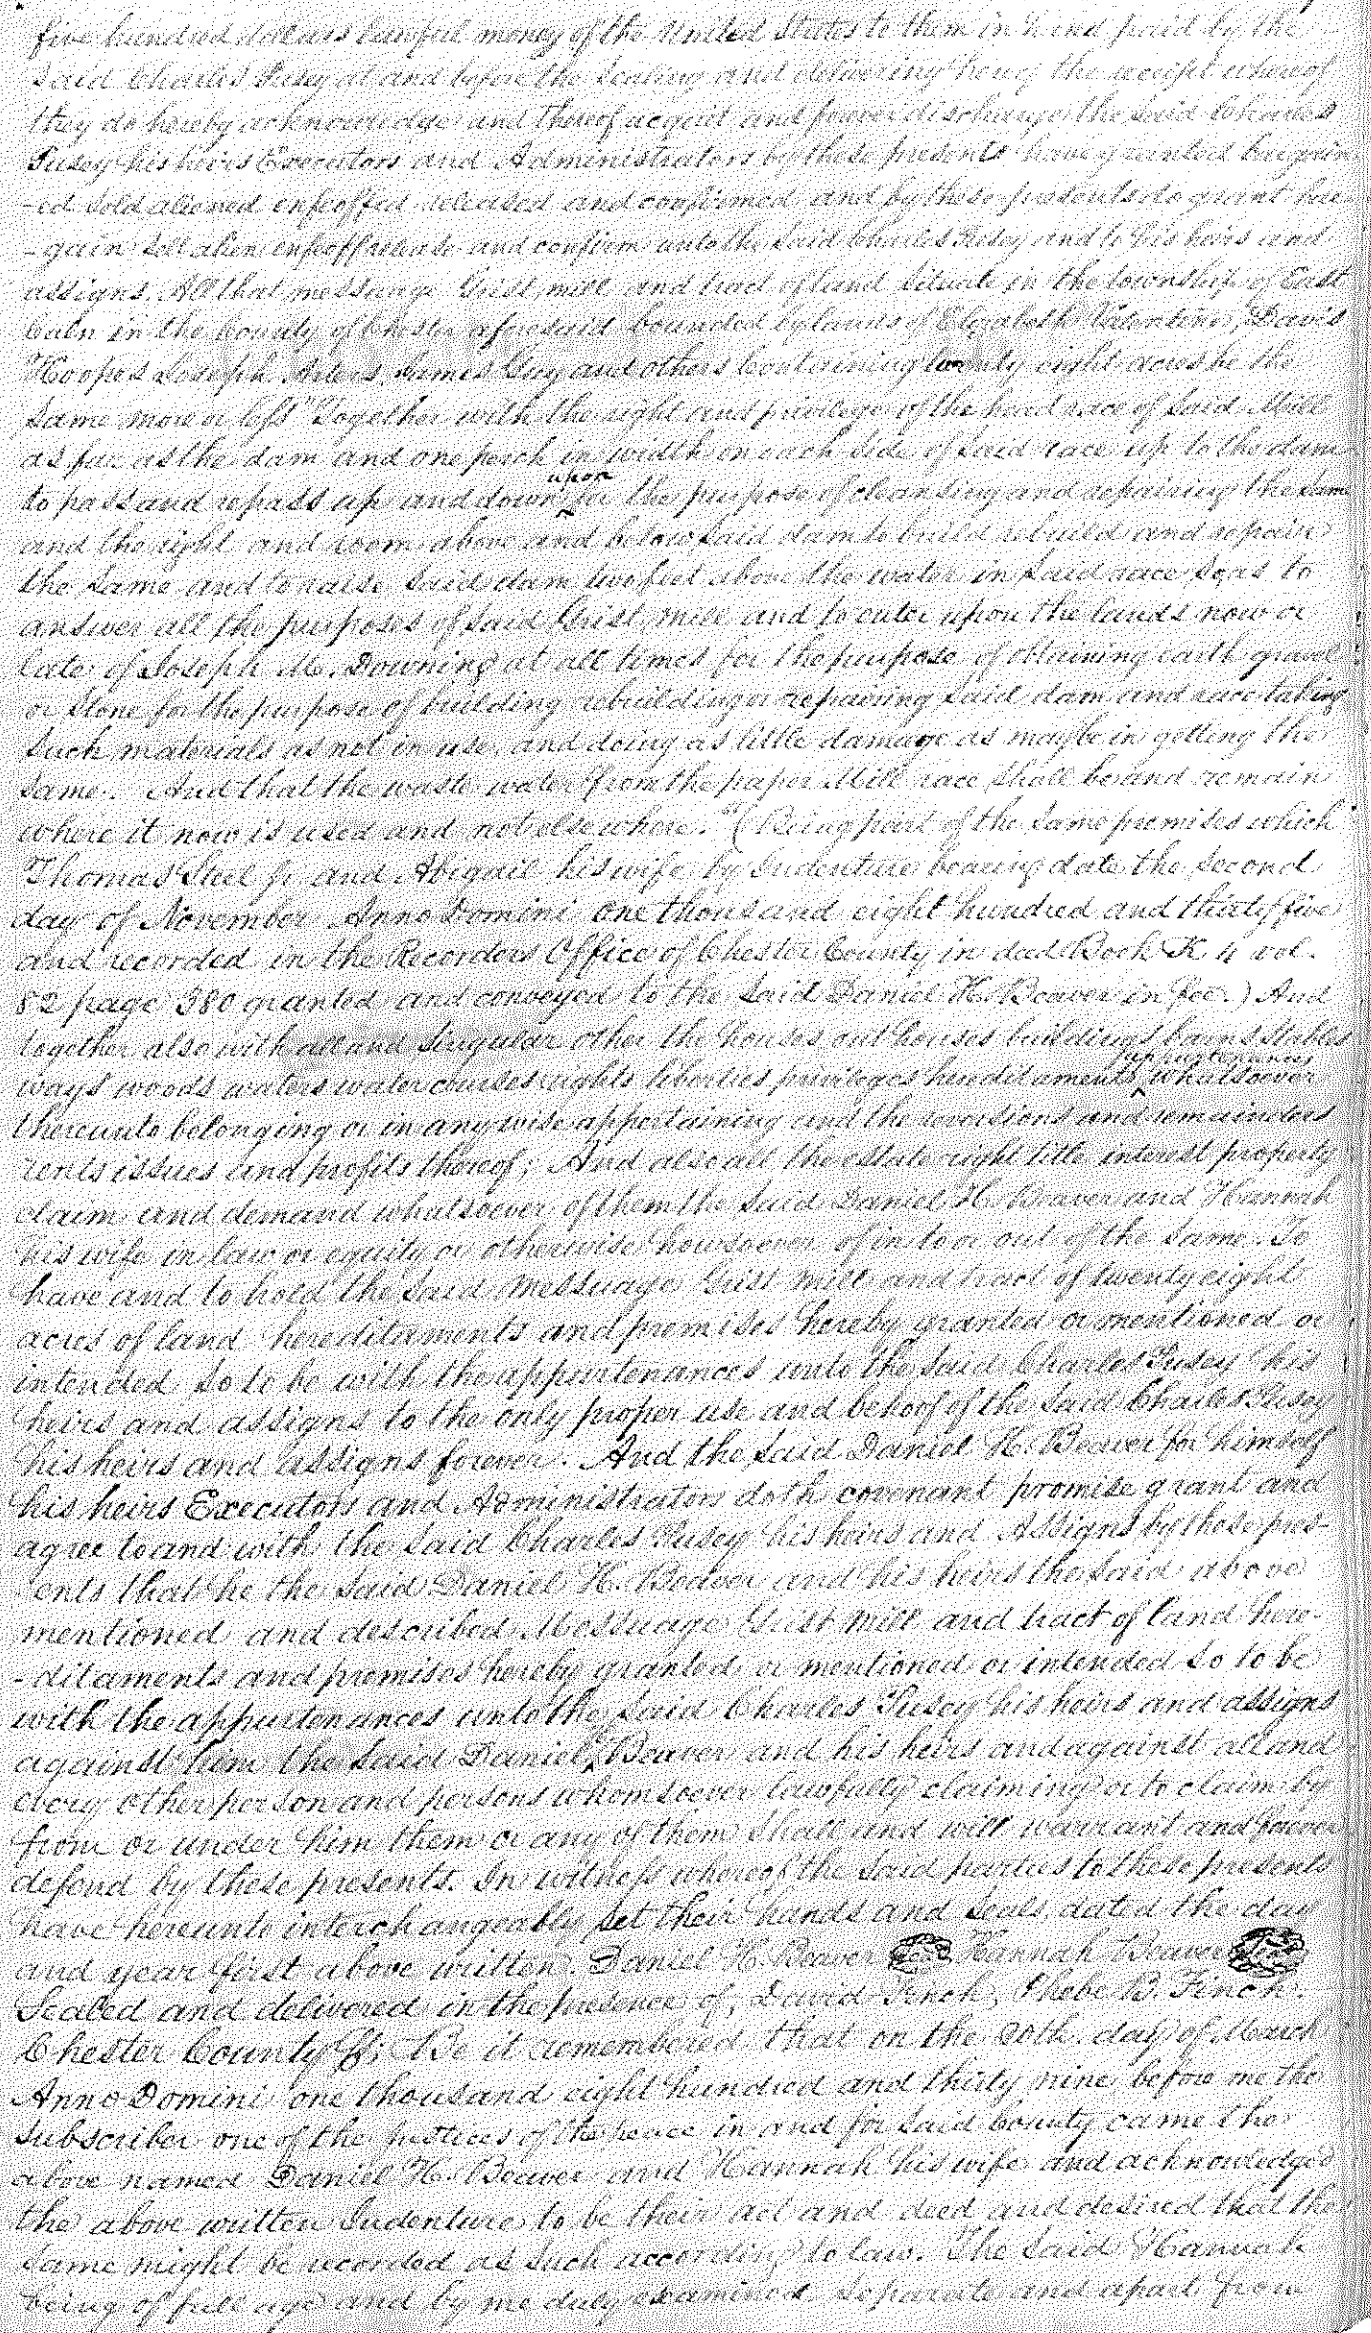 five hundred dollars lawful money of the United States to them in hand paid by the
said Charles Pusey at and before the sealing and delivering hereof the receipt whereof
they do hereby acknowledge and thereof acquit and forever discharge the said Charles
Pusey his heirs Executors and Administrators by these presents have granted bargain
-ed sold aliened enfeoffed released and confirmed and by these presents do grant bar
-gain sell alien enfeoff release and confirm unto the said Charles Pusey and to his heirs and
assigns. All that messuage Grist mill and tract of land situate in the township of East
Caln in the County of Chester aforesaid bounded by lands of Elizabeth Valentine, David
Hoopes Joseph James Guy and others Containing twenty eight acres be the
same more or less "Together with the right and privilege of the head race of said Mill
as far as the dam and one perch in width on each side of said race up to the dam
to pass and repass up and down upon for the purpose of cleansing and repairing the same
and the right and room above and below said dam to build rebuild and repair
the same and to raise said dam two feet above the water in said race so as to
answer all the purposes of said Grist mill and to enter upon the lands now or
late of Joseph M. Downing at all times for the purpose of obtaining earth gravel
or stone for the purpose of building rebuilding or repairing said dam and race taking
such materials as not in use and doing as little damage as may be in getting the
same. And that the waste water from the paper Mill race shall be and remain
where it now is used and not elsewhere." (Being part of the same premises which
Thomas Shel Jr. and Abigail his wife by Indenture bearing date the second
day of November Anno Domini one thousand eight hundred and thirty five
and recorded in the Recorders Office of Chester County in deed Book K 4 vol.
82 page 380 granted and conveyed to the said Daniel H. Beaver in fee.) And
together also with all and singular other the houses out houses buildings barns stables
ways woods waters water courses rights liberties privileges hereditaments appurtenances whatsoever
thereunto belonging or in any wise appertaining and the reversions and remainders
rents issues and profits thereof; And also all the estate right title interest property
claim and demand whatsoever of them the said Daniel H. Beaver and Hannah
his wife in law or equity or otherwise howsoever of in to or out of the same. To
have and to hold the said Messuage Grist Mill and tract of twenty eight
acres of land hereditaments and premises hereby granted or mentioned or
intended so to be with the appurtenances unto the said Charles Pusey his
heirs and assigns to the only proper use and behoof of the said Charles Pusey
his heirs and assigns forever. And the said Daniel H. Beaver for himself
his heirs Executors and Administrators doth covenant promise grant and
agree to and with the said Charles Pusey his heirs and Assigns by these pres-
-ents that he the said Daniel H. Beaver and his heirs the said above
mentioned and described Messuage Grist Mill and tract of land here-
-ditaments and premises hereby granted or mentioned or intended so to be
with the appurtenances unto the said Charles Pusey his heirs and assigns
against him the said Daniel Beaver and his heirs and against all and
every other person and persons whomsoever lawfully claiming or to claim by
from or under him them or any of them shall and will warrant and forever
defend by these presents. In witness whereof the said parties to these presents
have hereunto interchangeably set their hands and seals dated the day
and year first above written. Daniel H. Beaver Hannah Beaver
Sealed and delivered in the presence of, David Finch, Phebe B. Finch.
Chester County ss; Be it remembered that on the 20th day of March
Anno Domini one thousand eight hundred and thirty nine before me the
subscriber one of the justices of the peace in and for said County came the
above named Daniel H. Beaver and Hannah his wife and acknowledged
the above written Indenture to be their act and deed and desired that the
same might be recorded as such according to law. The said Hannah
being of full age and by me duly examined separate and apart from